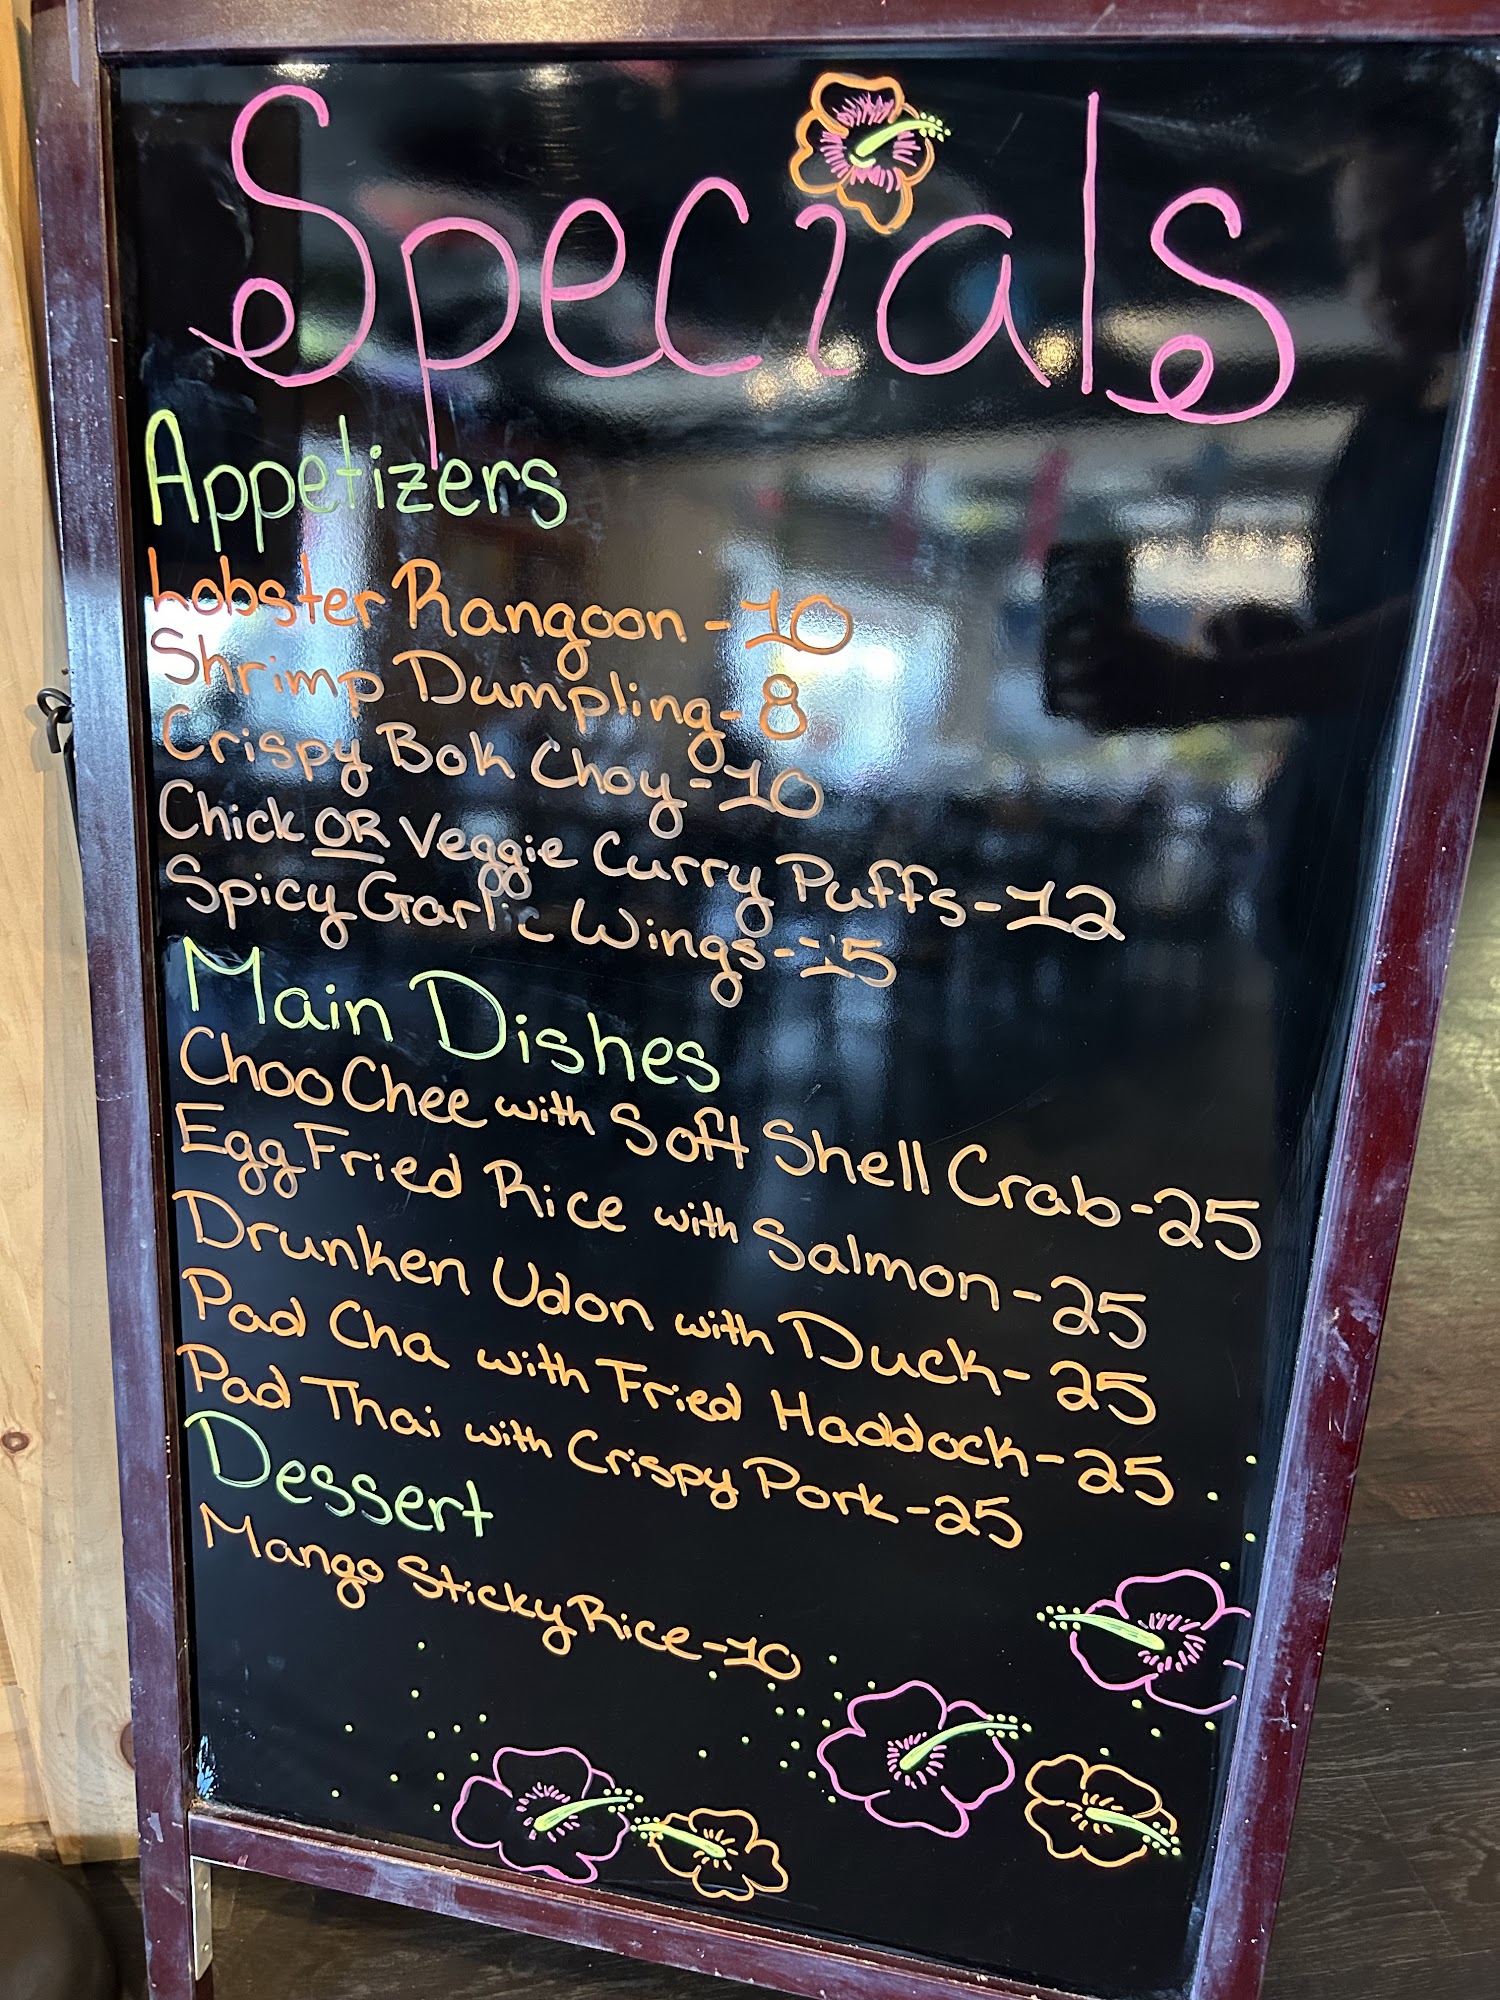 Specials
Appetizers
Lobster Rangoon - 10
Shrimp Dumpling - 8
Crispy Bok Choy - 10
Chick OR Veggie Curry Puffs - 12
Spicy Garlic Wings - 15
Main Dishes
Choo Chee with Soft Shell Crab - 25
Egg Fried Rice with Salmon - 25
Drunken Udon with Duck - 25
Pad Cha with Fried Haddock - 25
Pad Thai with Crispy Pork - 25
Dessert
Mango Sticky Rice - 10